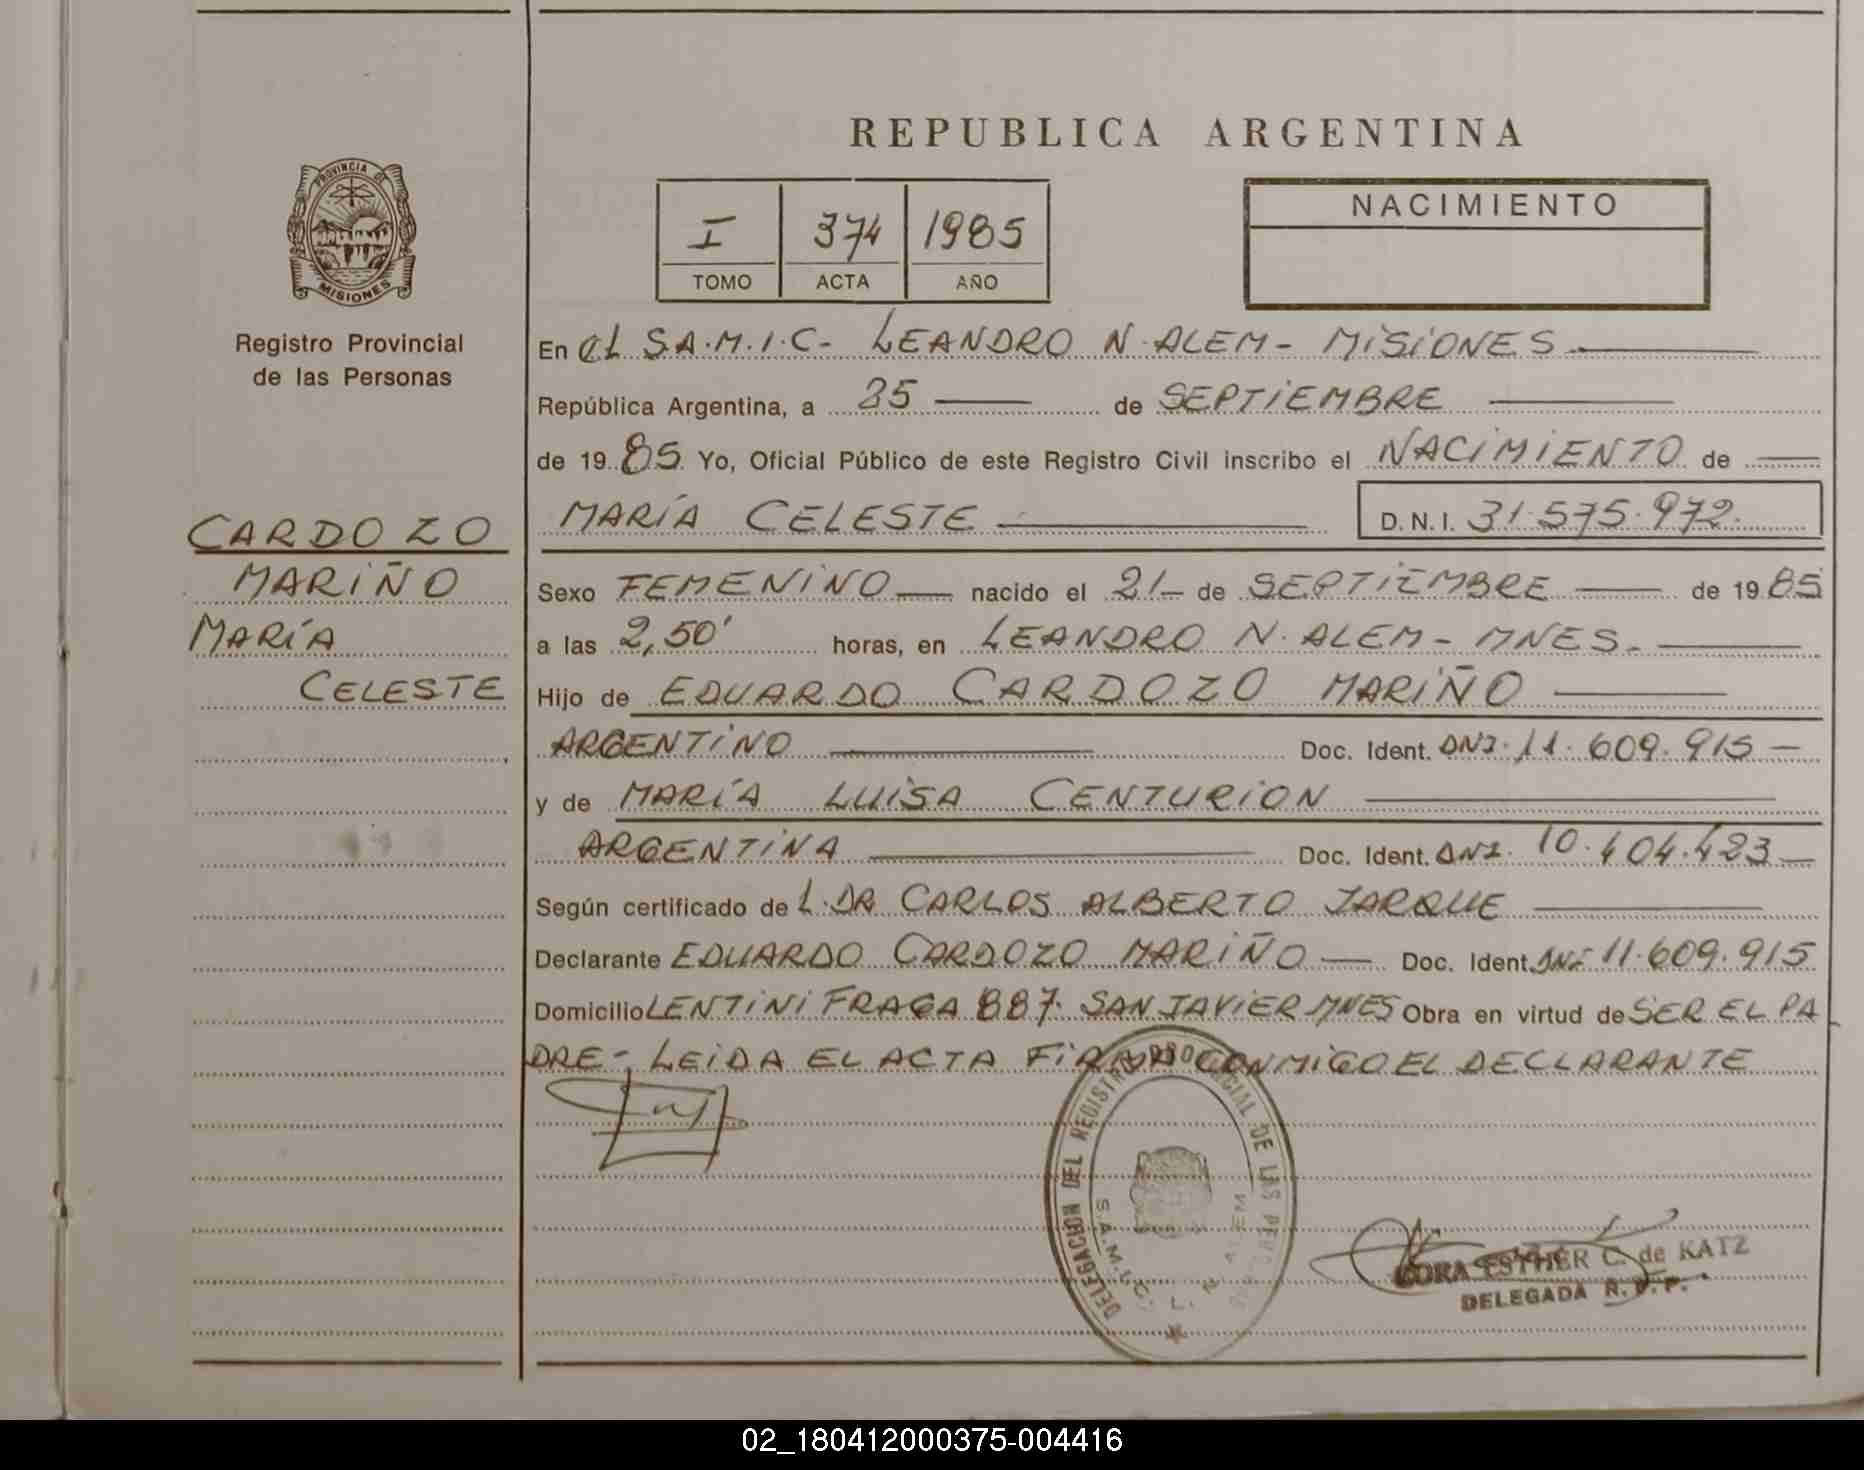 REPUBLICA ARGENTINA
PROVINCIA DE
MISIONES
Registro Provincial
de las Personas
I 374 1985
TOMO ACTA AÑO
NACIMIENTO
En el S.A.M.I.C- LEANDRO N. ALEM- MISIONES
República Argentina, a 25 de SEPTIEMBRE
de 19 85 Yo, Oficial Público de este Registro Civil inscribo el NACIMIENTO de
MARÍA CELESTE D.N.I. 31.575.972.
CARDOZO
MARIÑO
MARÍA
CELESTE
Sexo FEMENINO nacido el 21 de SEPTIEMBRE de 19 85
a las 2,50' horas, en LEANDRO N. ALEM- MNES.
Hijo de EDUARDO CARDOZO MARIÑO
ARGENTINO Doc. Ident. DNI. 11.609.915
y de MARÍA LUISA CENTURION
ARGENTINA Doc. Ident. DNI. 10.404.423
Según certificado del DR CARLOS ALBERTO JARQUE
Declarante EDUARDO CARDOZO MARIÑO Doc. Ident. DNI 11.609.915
Domicilio LENTINI FRAGA 887. SAN JAVIER MNES Obra en virtud de SER EL PA
DRE- LEIDA EL ACTA FIRMA CONMIGO EL DECLARANTE
DELEGACION DEL REGISTRO PROVINCIAL DE LAS PERSONAS
S.A.M.I.C. L. N. ALEM
DORA ESTHER C. de KATZ
DELEGADA R.P.P.
02_180412000375-004416